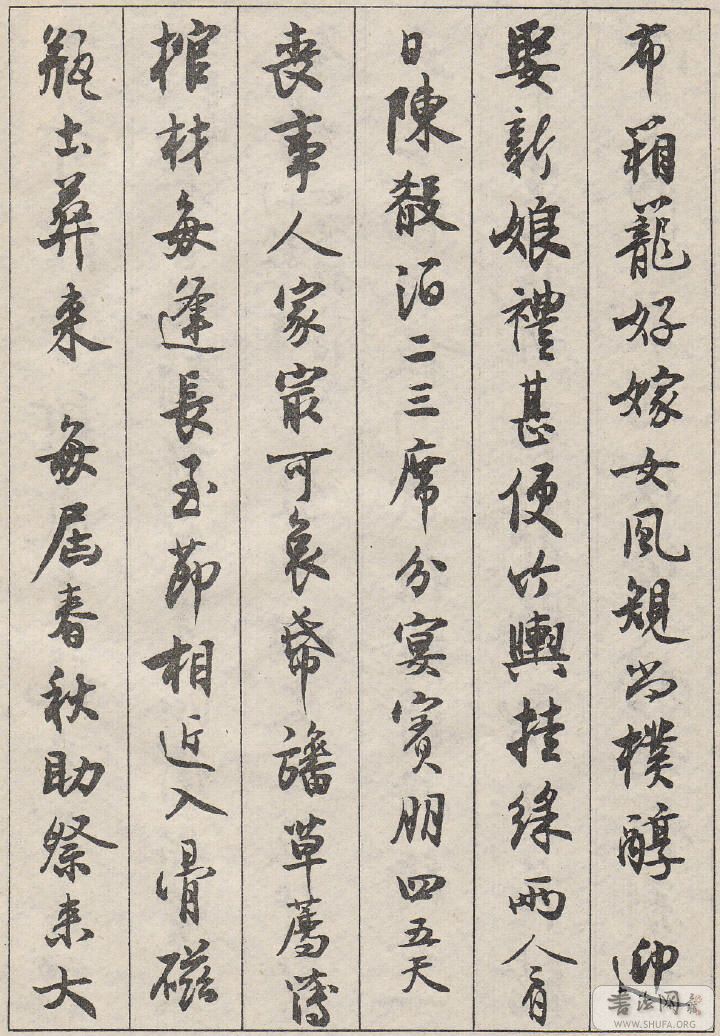 布箱籠好嫁女風規尚樸醇 迎
娶新娘禮甚便竹輿挂綵兩人肩
日陳殽酒二三席分宴賓朋四五天
喪事人家冣可哀帋草薦薄
棺材每逢長至節相近入骨磁
瓶土葬來 每屆春秋助祭來大
书法网
WWW.SHUFA.ORG